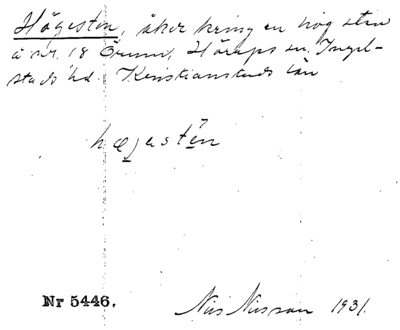 Högesten, åker kring en hög sten
å nr. 18 Örum, Hörups sn, Ingel-
stads hd. Kristianstads län
hœjastên
Nr 5446.
Nils Nilsson 1931.